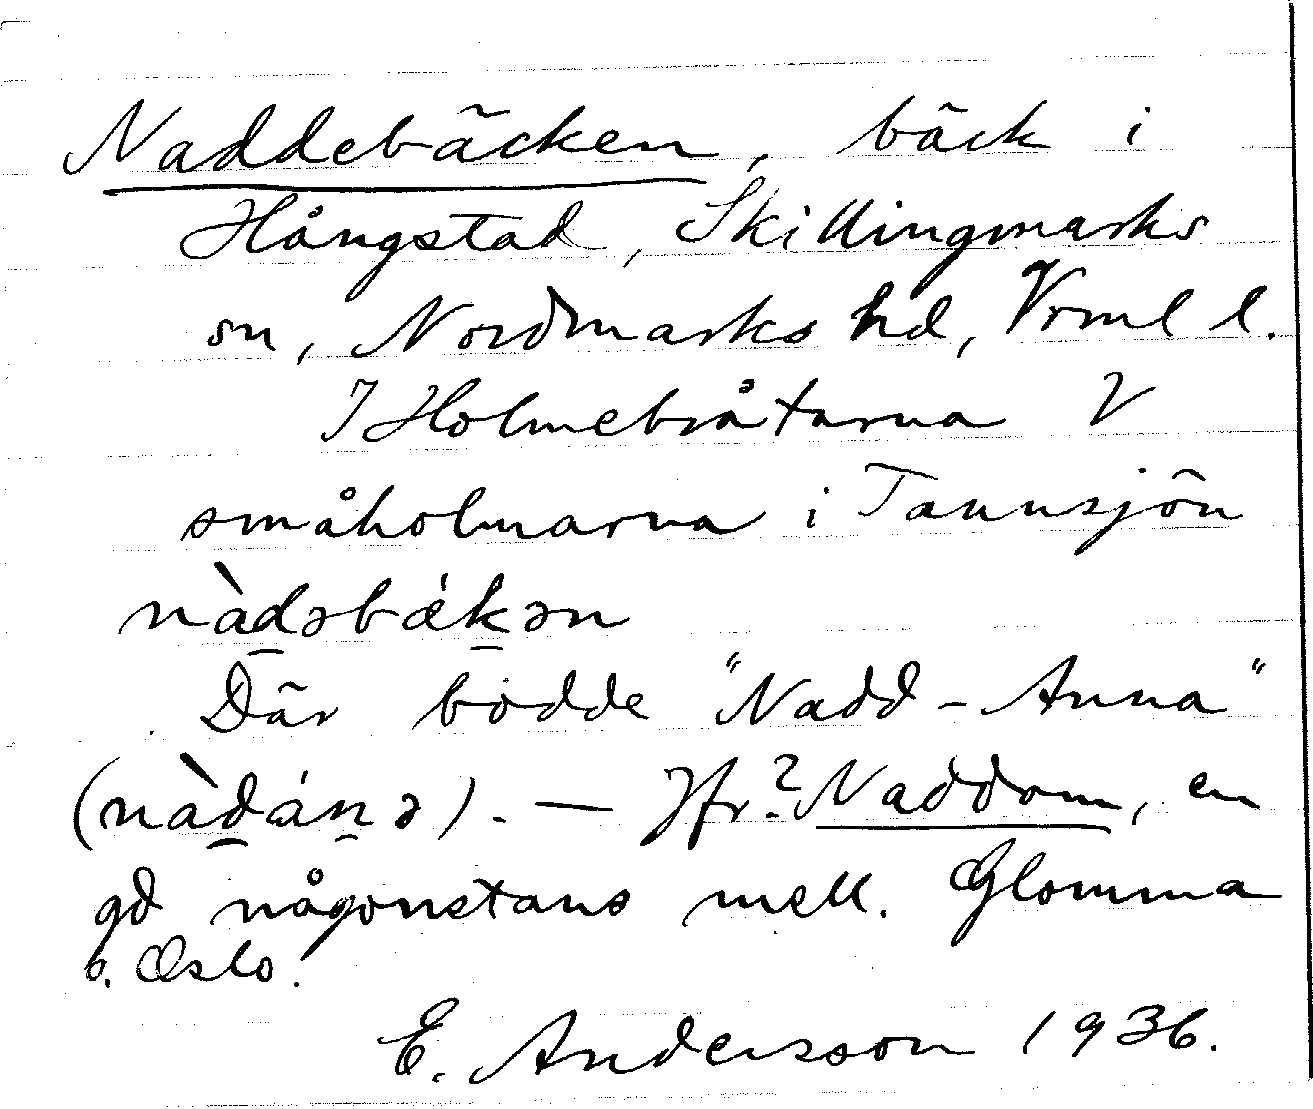 Naddebäcken, bäck i
Hångstad, Skillingmarks
sn, Nordmarks hd, Vrml l.
I Holmebråtarna V
småholmarna i Tannsjön
nàdəbǽkən
Där bodde "Nadd-Anna"
(nàdánə). — Jfr? Naddom, en
gd någonstans mell. Glomma
o. Oslo.
E. Andersson 1936.